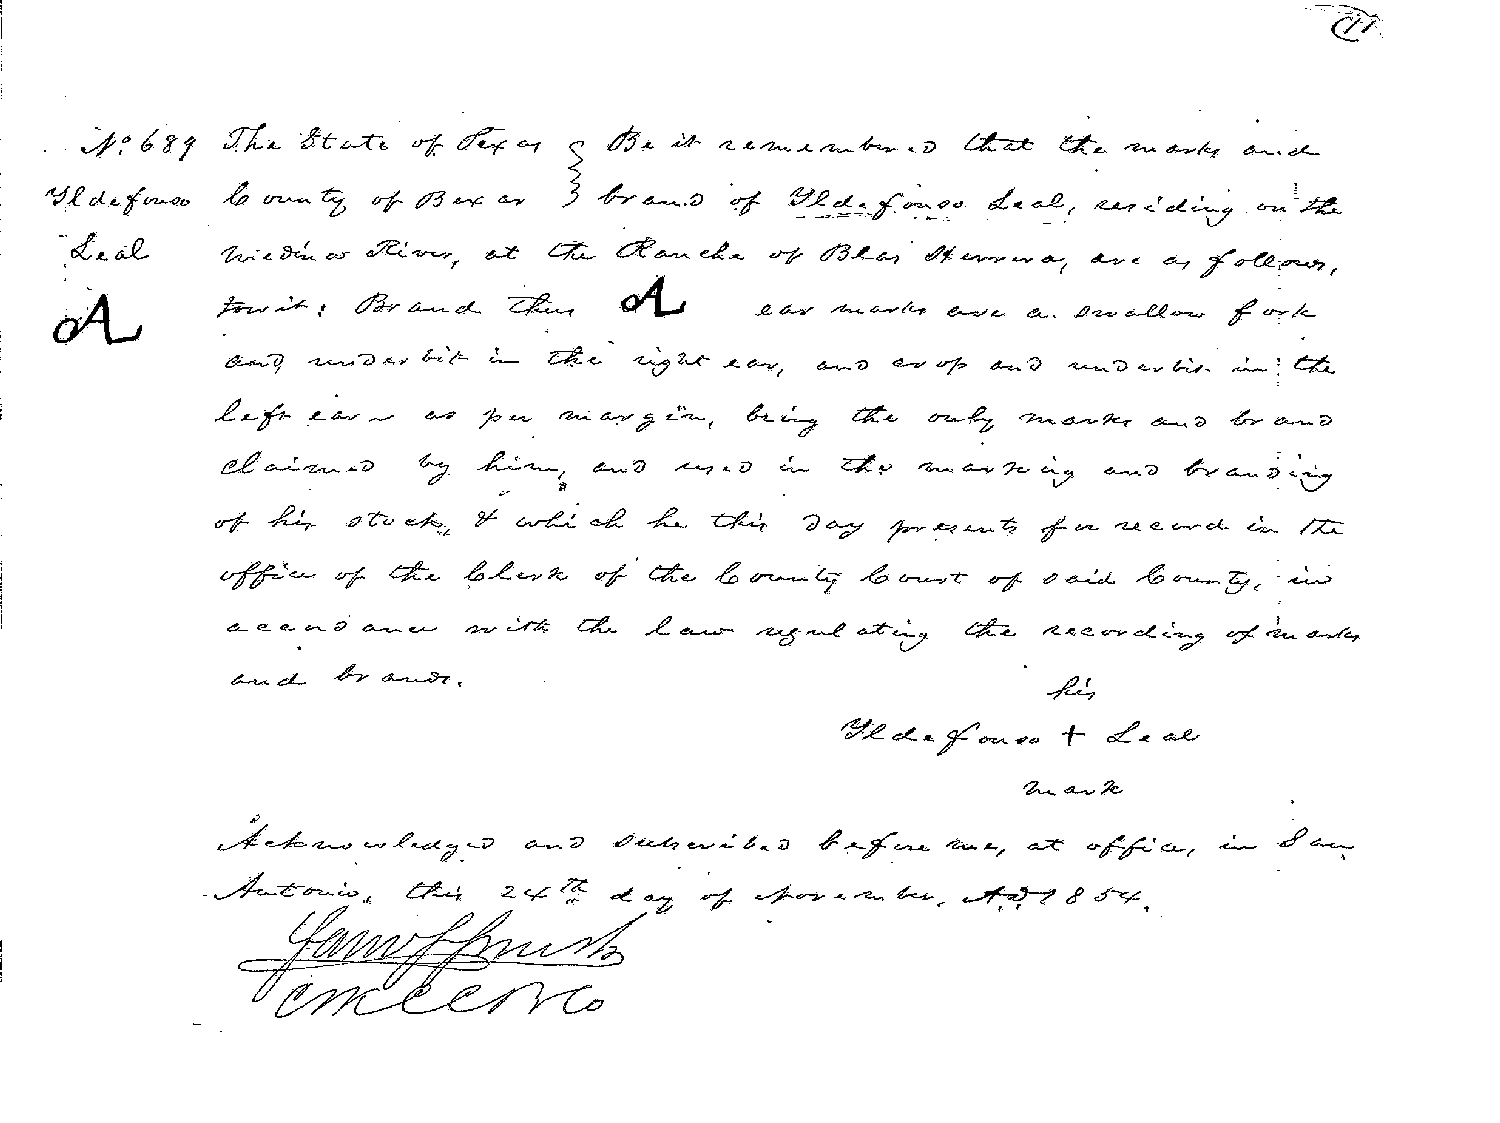 No. 689 The State of Texas } Be it remembered that the marks and
Yldefonso County of Bexar } brand of Yldefonso Leal, residing on the
Leal Medina River, at the Rancho of Blas Herrera, are as follows,
towit: Brand thus A ear marks are a swallow fork
and underbit in the right ear, and crop and underbit in the
left ear as per margin, being the only marks and brand
claimed by him, and used in the marking and branding
of his stock, & which he this day presents for record in the
office of the Clerk of the County Court of said County, in
accordance with the law regulating the recording of marks
and brands.
his
Yldefonso + Leal
mark
Acknowledged and subscribed before me, at office, in San
Antonio, this 24th day of November, AD 1854.